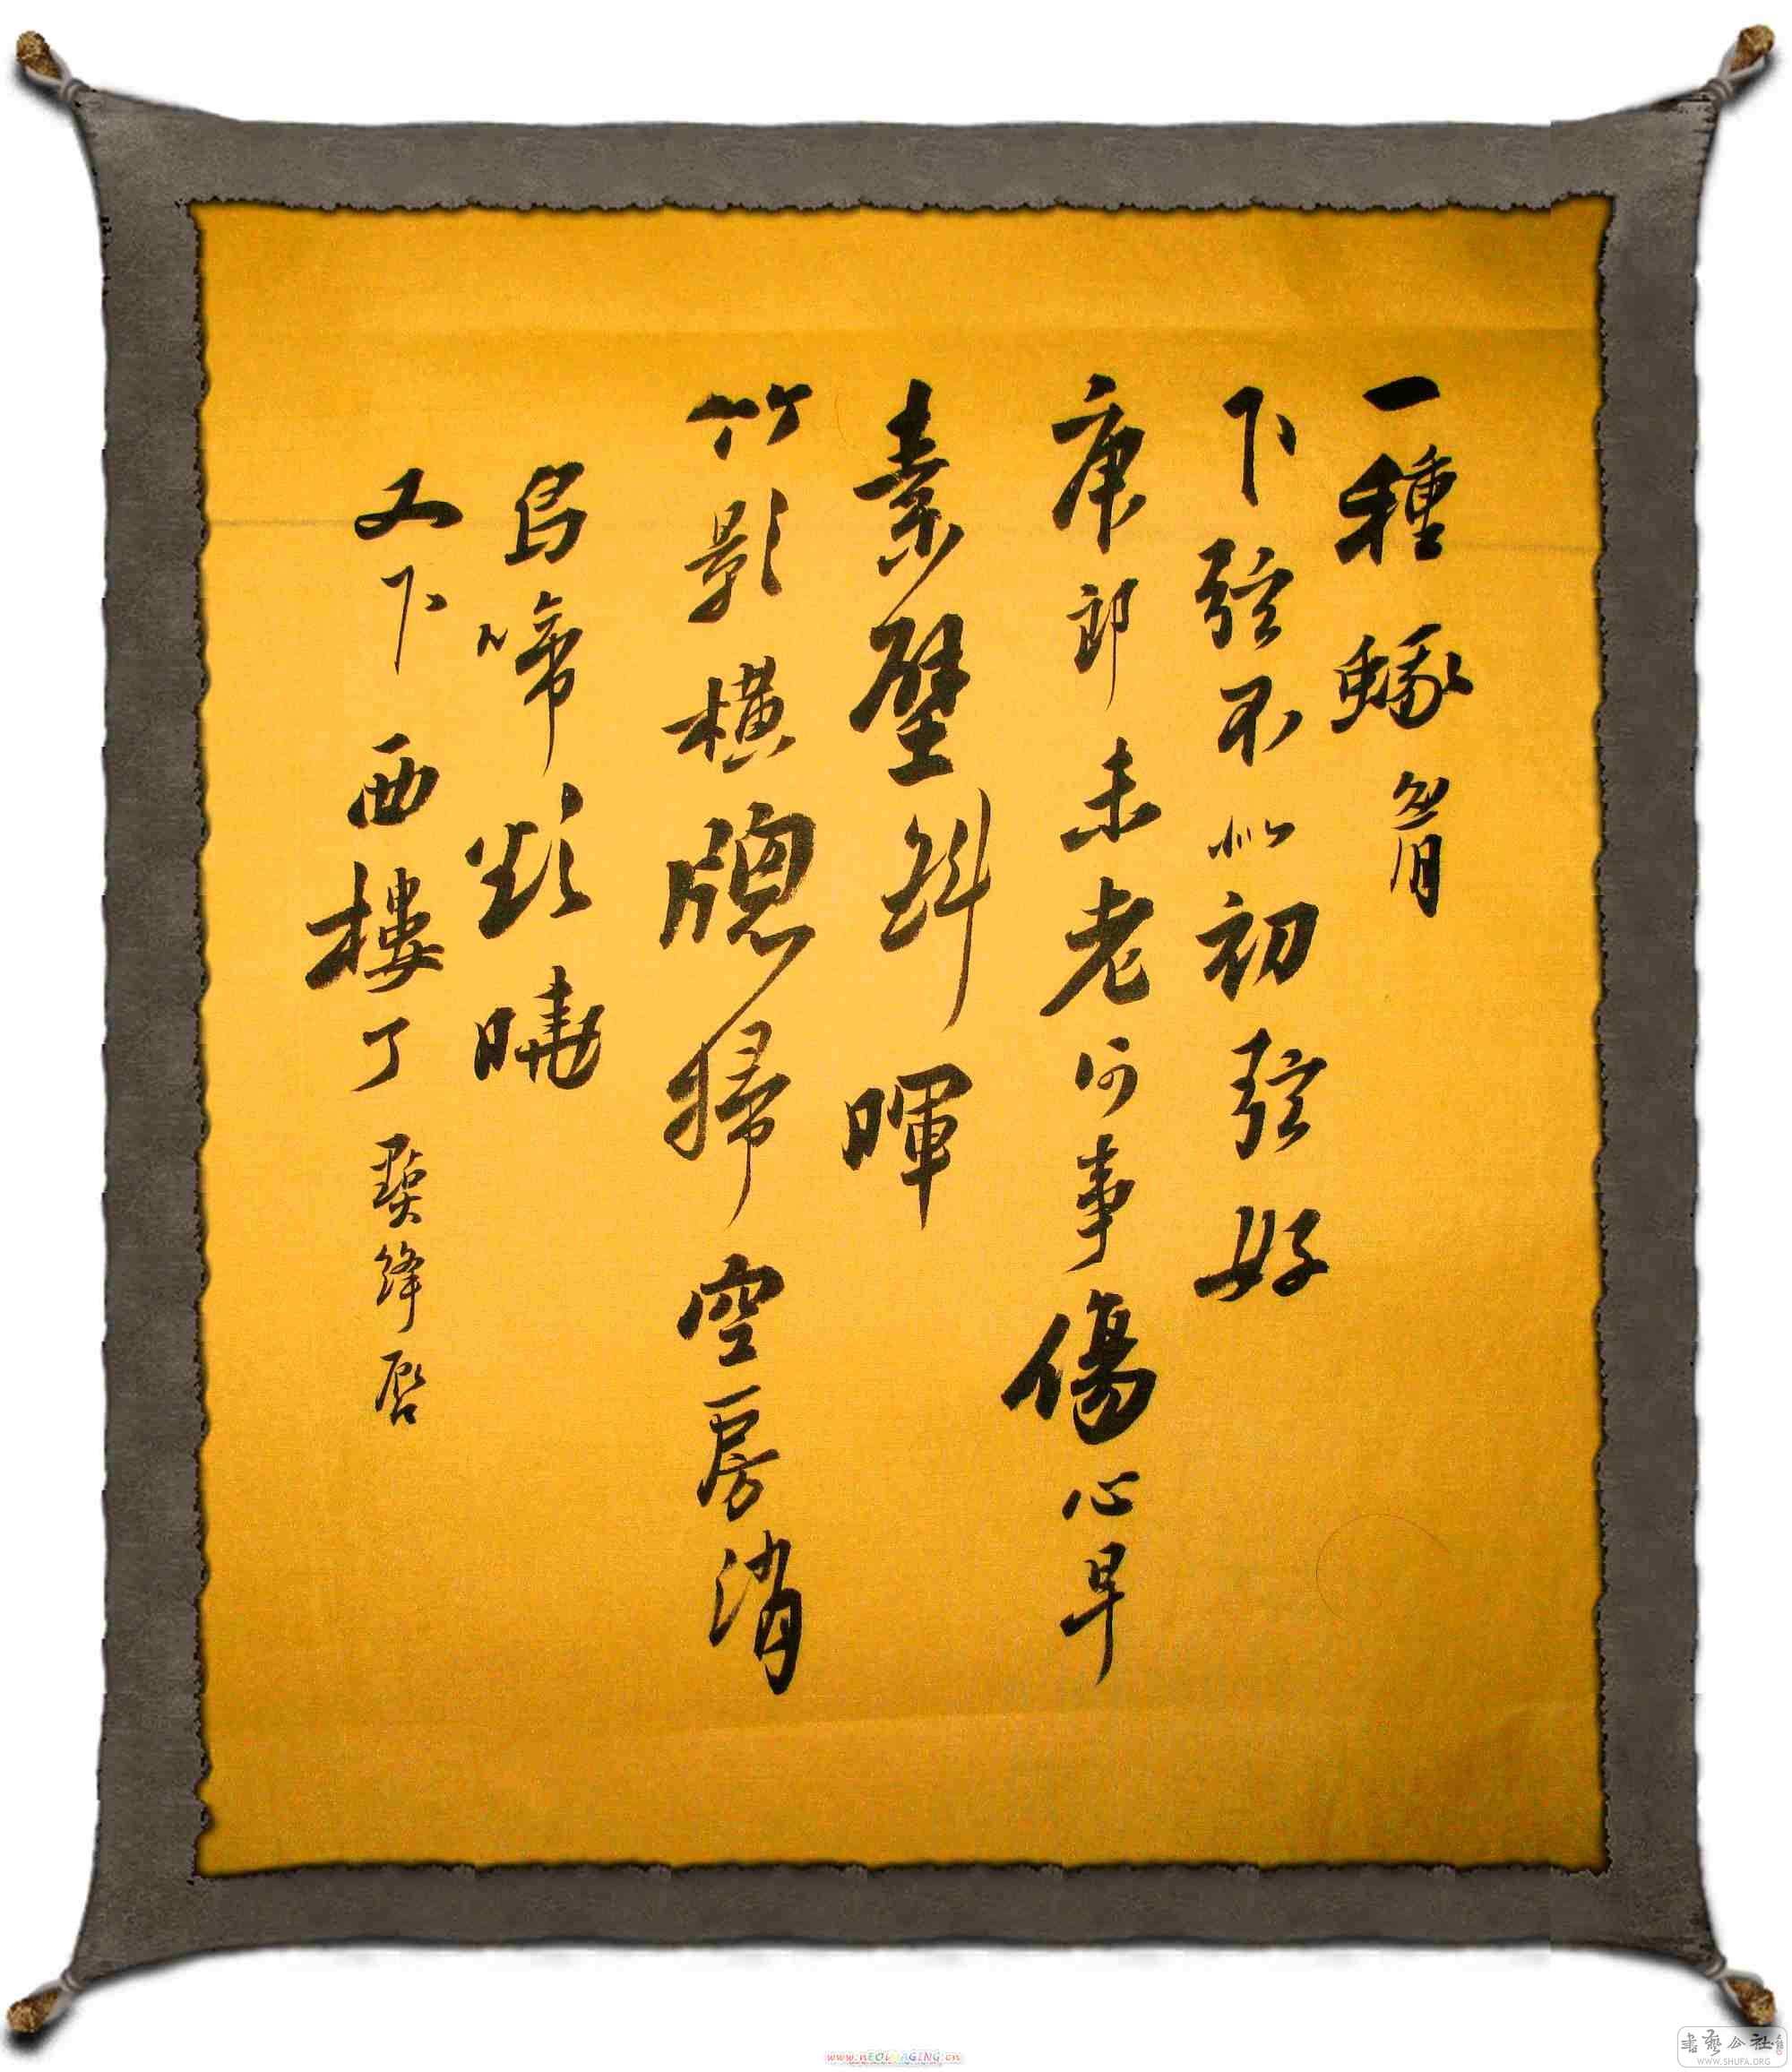 一種蛾眉
下弦不似初弦好
庾郎未老何事傷心早
素壁斜暉
竹影橫牕掃空房消
烏啼欲曉
又下西樓了 點絳唇
www.nEOIMAGING.cn
書藝公社
WWW.SHUFA.ORG